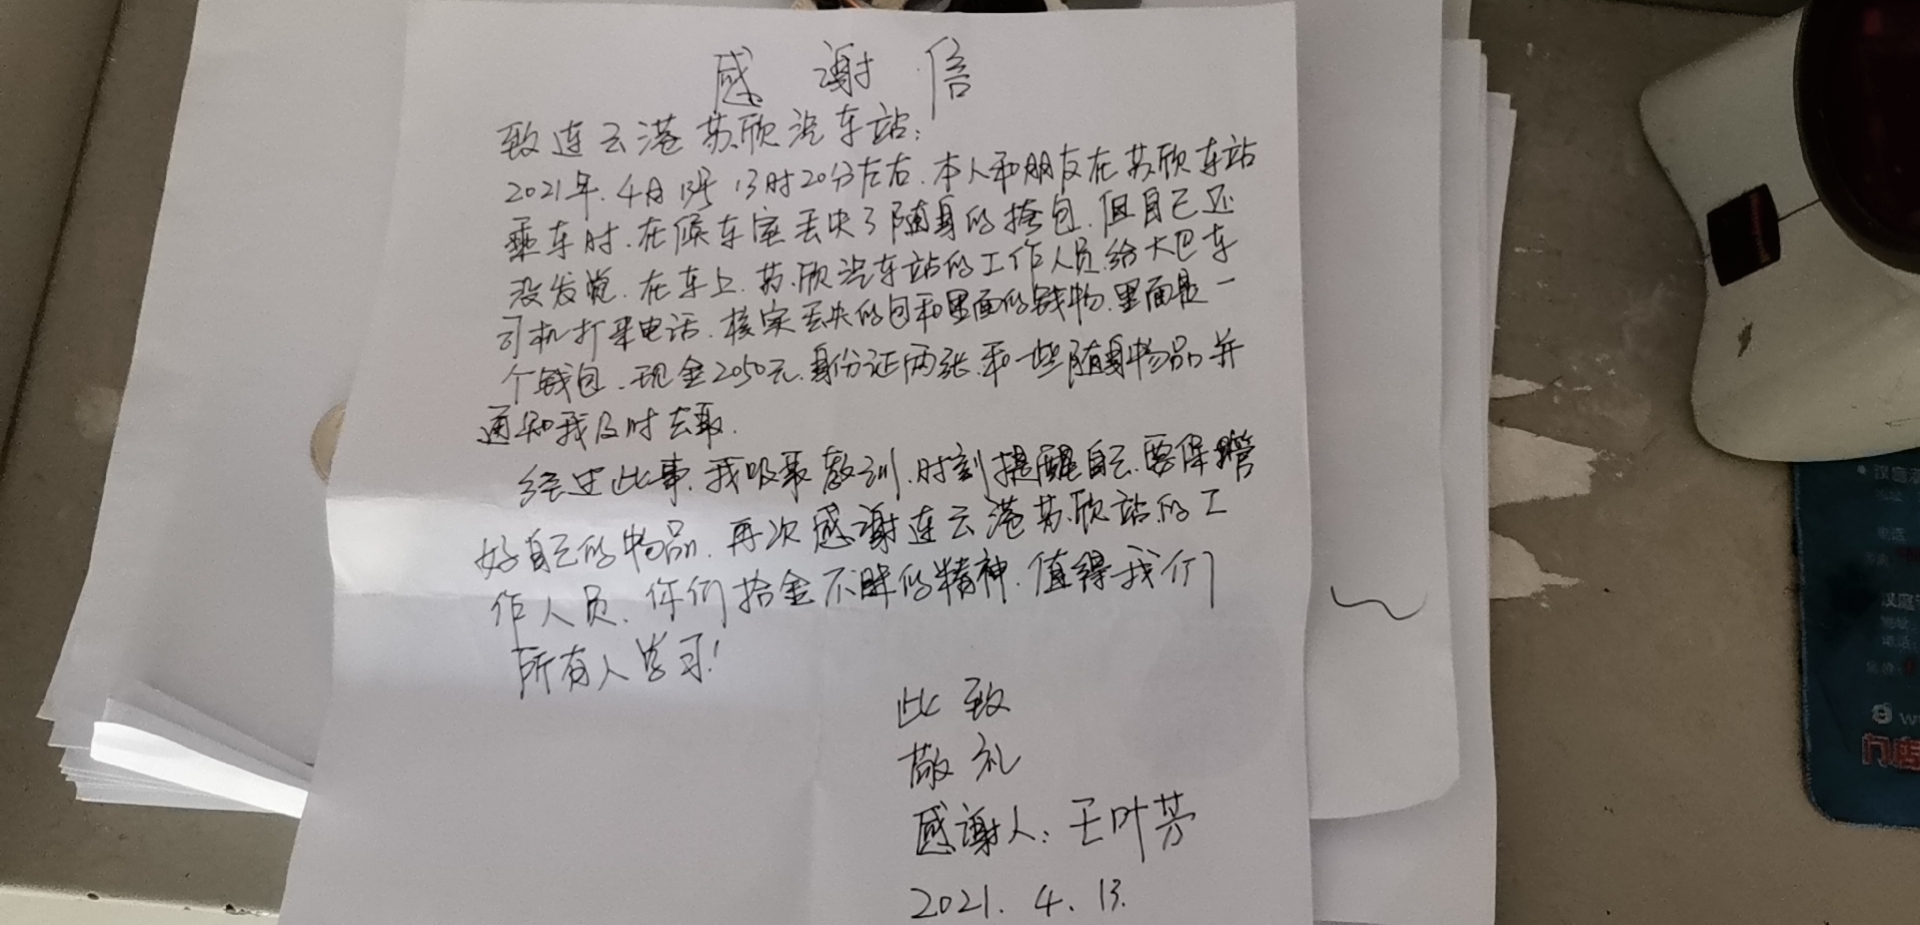 感谢信
致连云港苏欣汽车站:
2021年.4月13号13时20分左右.本人和朋友在苏欣车站
乘车时.在候车室丢失了随身的挎包.但自己还
没发觉.在车上.苏欣汽车站的工作人员.给大巴车
司机打来电话.核实丢失的包和里面的钱物.里面是一
个钱包.现金2050元.身份证两张.和一些随身物品并
通知我及时去取.
经过此事.我吸取教训.时刻提醒自己.要保管
好自己的物品.再次感谢连云港苏欣站的工
作人员.你们拾金不昧的精神.值得我们
所有人学习!
此致
敬礼
感谢人:王叶芳
2021.4.13.
汉庭
电话
汉庭
门店